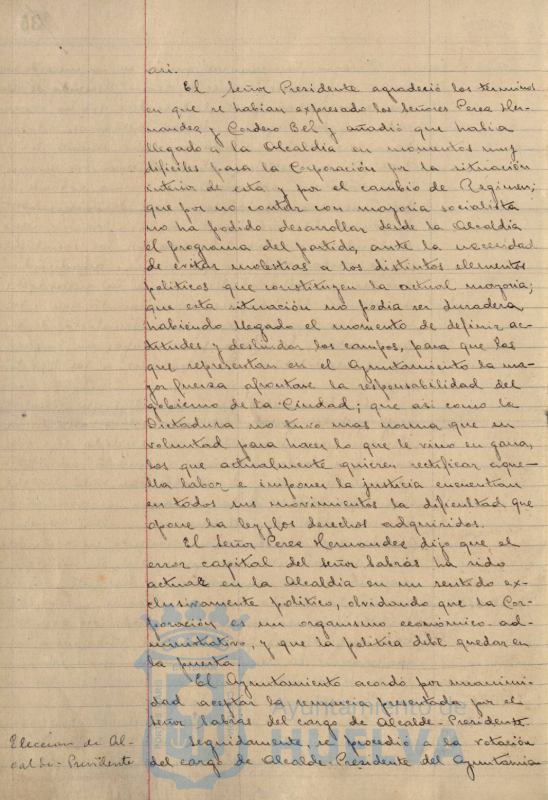 así.
El Señor Presidente agradeció los terminos
en que se habían expresado los Señores Perez Her-
nandez y Cordero Bel y añadió que había
llegado a la Alcaldía en momentos muy
difíciles para la Corporación por la situación
interior de esta y por el cambio de Regimen;
que por no contar con mayoría socialista
no ha podido desarrollar desde la Alcaldía
el programa del partido, ante la necesidad
de evitar molestias a los distintos elementos
políticos que constituyen la actual mayoría;
que esta situación no podía ser duradera,
habiendo llegado el momento de definir ac-
titudes y deslindar los campos, para que los
que representan en el Ayuntamiento la ma-
yor fuerza afrontase la responsabilidad del
gobierno de la Ciudad; que así como la
Dictadura no tuvo mas norma que su
voluntad para hacer lo que le vino en gana,
los que actualmente quieren rectificar aque-
lla labor e imponer la justicia encuentran
en todos sus movimientos la dificultad que
opone la ley y los derechos adquiridos.
El Señor Perez Hernandez dijo que el
error capital del Señor Sabrás ha sido
actuar en la Alcaldía en un sentido ex-
clusivamente político, olvidando que la Cor-
poración es un organismo económico-ad-
ministrativo, y que la política debe quedar en
la puerta.
El Ayuntamiento acordó por unanimi-
dad aceptar la renuncia presentada por el
Señor Sabras del cargo de Alcalde-Presidente.
Eleccion de Al-
calde-Presidente
Seguidamente se procedió a la votación
del cargo de Alcalde-Presidente del Ayuntamie
Ayuntamiento de
HUELVA